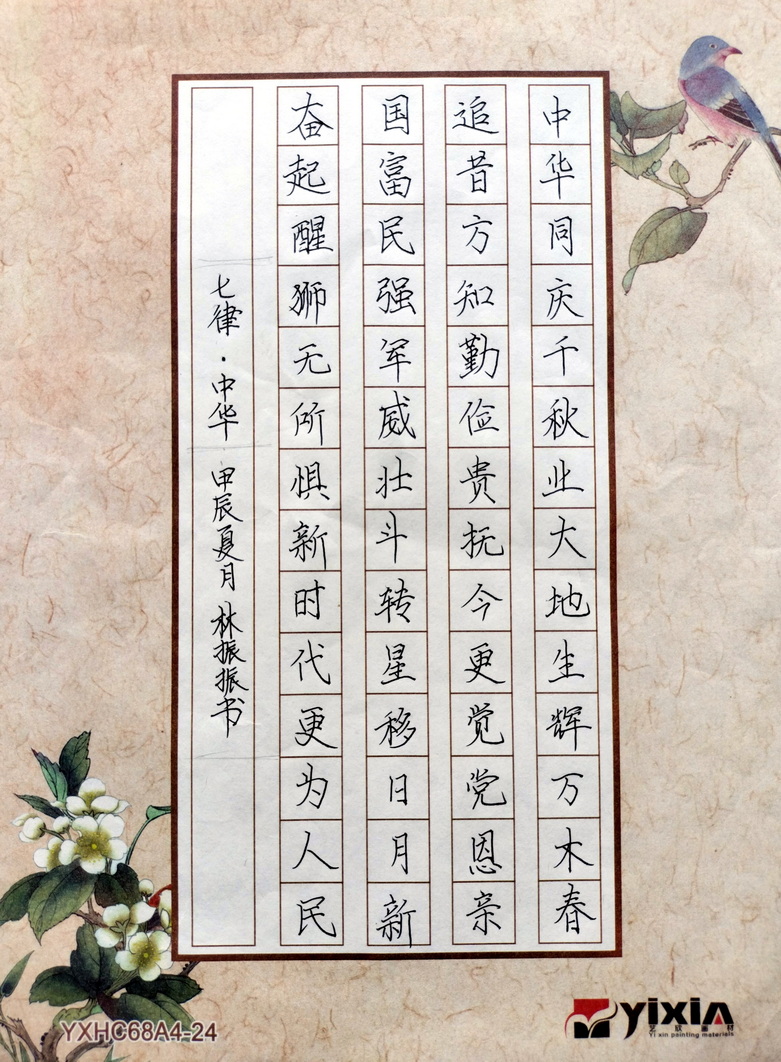 中华同庆千秋业大地生辉万木春
追昔方知勤俭贵抚今更觉党恩亲
国富民强军威壮斗转星移日月新
奋起醒狮无所惧新时代更为人民
七律·中华 甲辰夏月 林振振书
YXHC68A4-24
yixin
艺欣画材
Yi xin painting materials